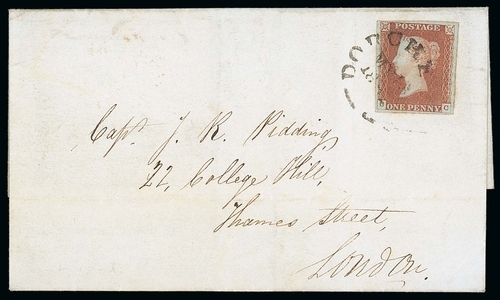 POSTAGE
ONE PENNY
Capt. J. R. Pidding,
22, College Hill,
Thames Street,
London.